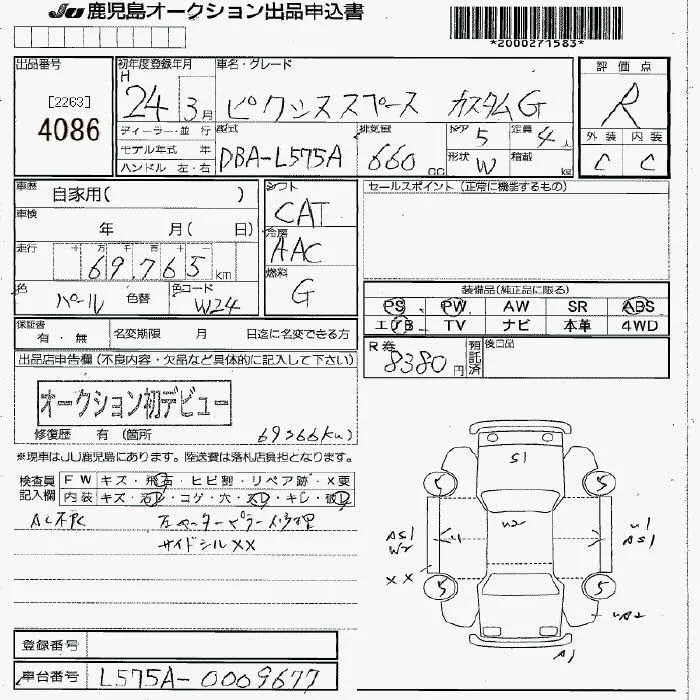 JU 鹿児島オークション出品申込書
*2000271583*
出品番号
[2263]
4086
初年度登録年月
H 24 3月
車名・グレード
ピクシススペース カスタムG
評価点
R
外装 内装
C C
ディーラー・並 行
モデル年式 年
ハンドル 左・右
型式
DBA-L575A
排気量
660 CC
ドア 5
定員 4人
形状 W
積載 kg
車歴
自家用( )
車検
年 月( 日)
走行
十 万 千 百 十
69,765 km
色
パール
色替
色コード
W24
シフト
CAT
冷房
AAC
燃料
G
セールスポイント(正常に機能するもの)
装備品(純正品に限る)
PS PW AW SR ABS
エアB TV ナビ 本革 4WD
保証書
有・無
名変期限 月 日迄に名変できる方
R券
8380円
預託済
後日品
出品店申告欄(不良内容・欠品など具体的に記入して下さい)
オークション初デビュー
修復歴 有(箇所
69766km)
※現車はJU鹿児島にあります。陸送費は落札店負担となります。
検査員記入欄
FW キズ・飛石・ヒビ割・リペア跡・X要
内装 キズ・汚レ・コゲ・穴・スレ・キレ・破レ
AC不良
左センターピラー修理
サイドシルXX
S1
5 5
AS1
W2
U1
U2
U1
AS1
XX
5 5
UA2
A1
登録番号
車台番号 L575A-0009677